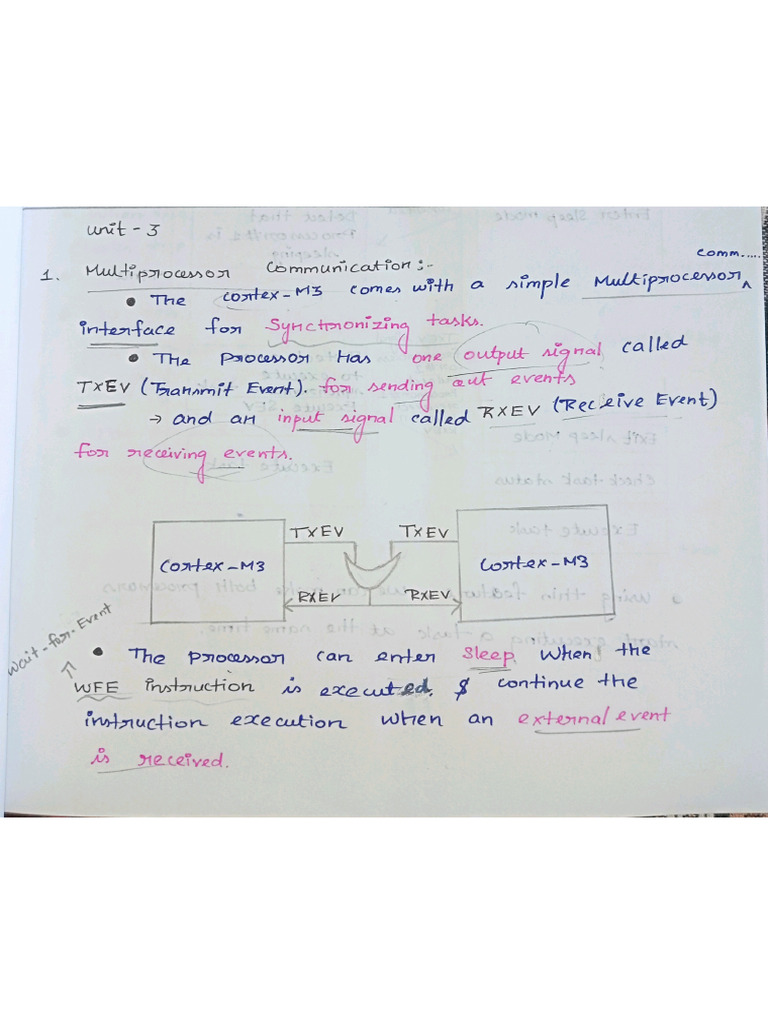 unit - 3
comm.....
1. Multiprocessor Communication:-
• The cortex-M3 comes with a simple Multiprocessor^
interface for Synchronizing tasks.
• The processor has one output signal called
TXEV (Transmit Event). for sending out events
→ and an input signal called RXEV (Receive Event)
for receiving events.
TXEV TXEV
cortex-M3 cortex-M3
RXEV RXEV
wait-for-Event
• The processor can enter sleep when the
WFE instruction is executed, & continue the
instruction execution when an external event
is received.